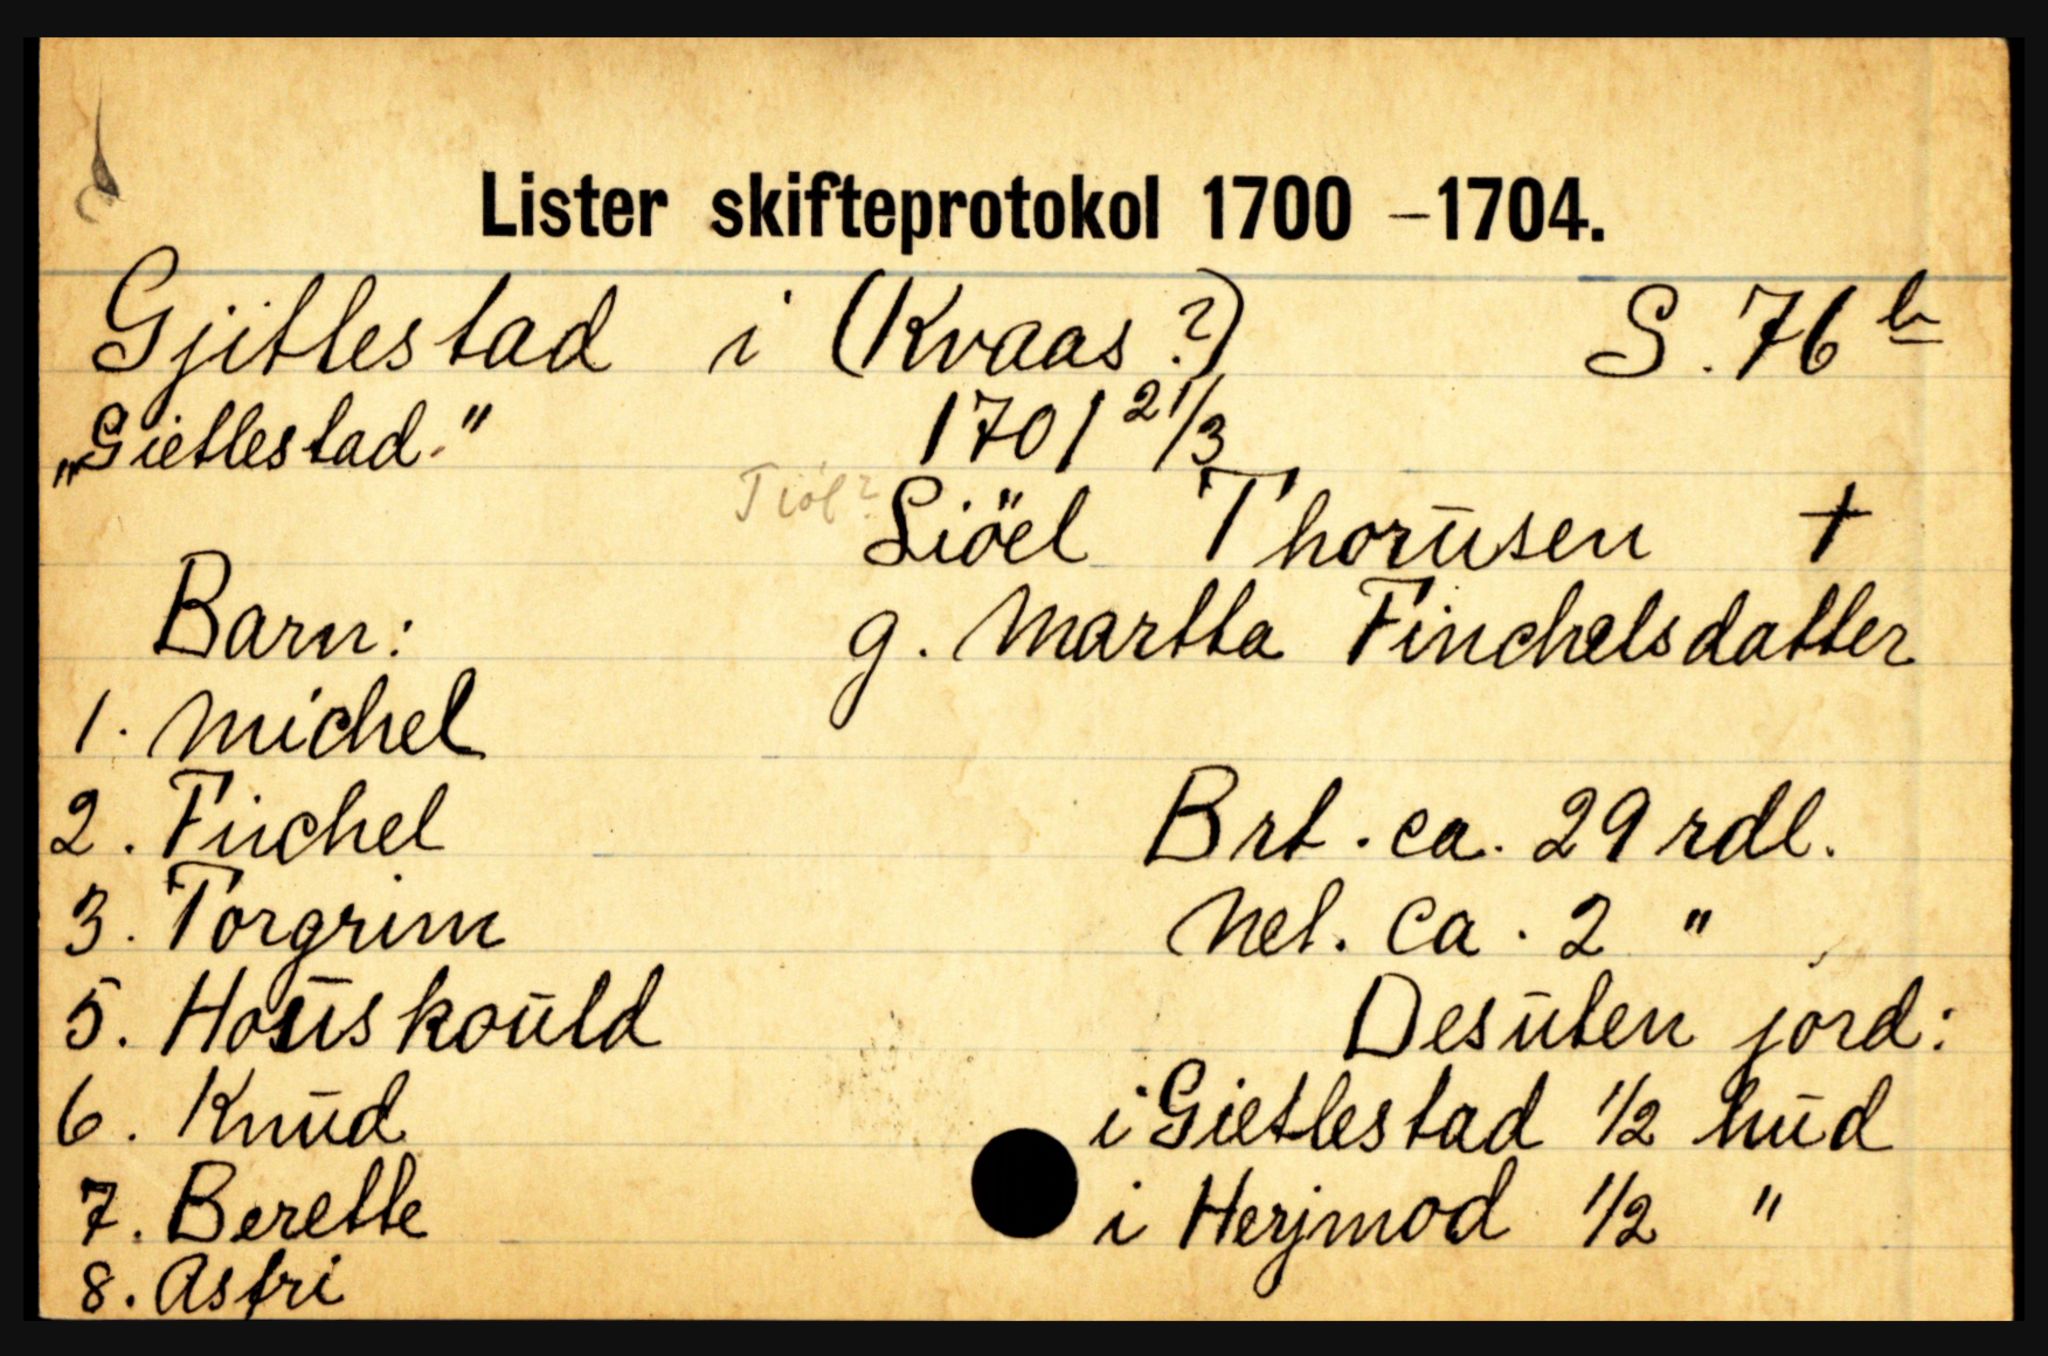 Lister skifteprotokol 1700 – 1704.
Gjitlestad i (Kvaas?) S. 76 b
„Gietlestad." 1701 21/3
Tiöl? Siöel Thorusen †
Barn: g. Martta Finchelsdatter
1. Michel
2. Finchel Brt. ca. 29 rdl.
3. Torgrim Net. ca. 2 "
5. Houskould Desuten jord:
6. Knud i Gietlestad 1/2 hud
7. Berette i Herjmod 1/2 "
8. Asfri